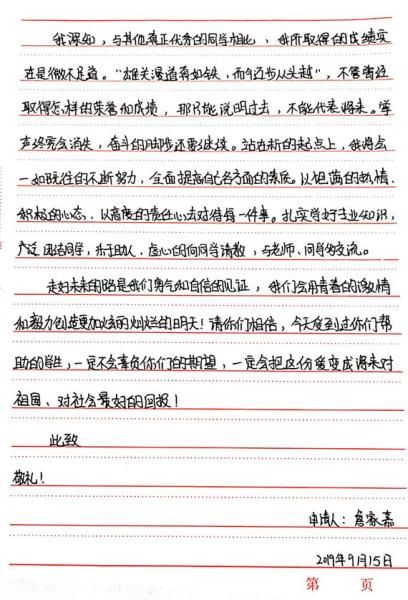 我深知，与其他真正优秀的同学相比，我所取得的成绩实
在是微不足道。“雄关漫道真如铁，而今迈步从头越”，不管曾经
取得怎样的荣誉和成绩，那只能说明过去，不能代表将来。掌
声终究会消失，奋斗的脚步还要继续。站在新的起点上，我将会
一如既往的不断努力，全面提高自己各方面的素质。以饱满的热情、
积极的心态、以高度的责任心去对待每一件事。扎实学好专业知识，
广泛团结同学，乐于助人，虚心的向同学请教，与老师、同学的交流。
走好未来的路是我们勇气和自信的见证，我们会用青春的激情
和毅力创造更加炫丽灿烂的明天！请你们相信，今天受到过你们帮
助的学生，一定不会辜负你们的期望，一定会把这份爱变成将来对
祖国、对社会最好的回报！
此致
敬礼！
申请人：詹家嘉
2019年9月15日
第 页